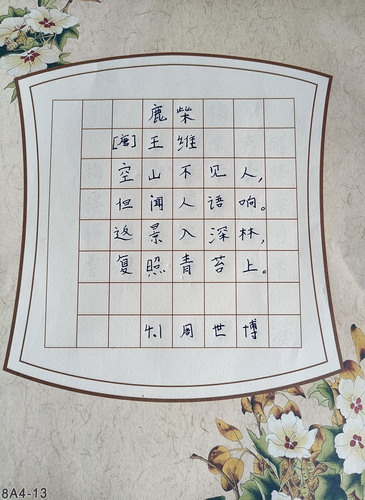 鹿柴
[唐] 王维
空山不见人，
但闻人语响。
返景入深林，
复照青苔上。
4.1 周世博
8A4-13